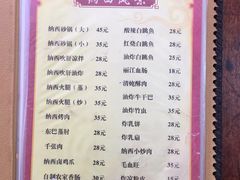 纳西风味
纳西砂锅（大） 45元
纳西砂锅（小） 35元
纳西吹肝凉拌 28元
纳西吹肝油炸 28元
纳西火腿（蒸） 35元
纳西火腿（炒） 35元
纳西烤肉 35元
东巴蒸肘 28元
千张肉 28元
纳西卤鸡爪 28元
自制农家香肠 30元
酸辣白跳鱼 28元
红烧白跳鱼 28元
油炸白跳鱼 28元
丽江血肠 18元
清蛇酥肉 28元
油炸牛干巴 35元
油炸竹虫 35元
炸乳饼 28元
炸乳扇 28元
纳西小炒肉 28元
毛血旺 35元